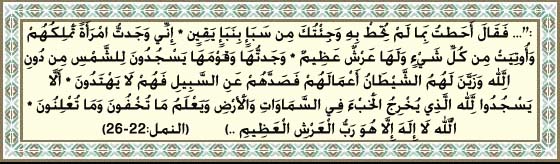 :"... فَقَالَ أَحَطتُ بِمَا لَمْ تُحِطْ بِهِ وَجِئْتُكَ مِن سَبَإٍ بِنَبَإٍ يَقِينٍ * إِنِّي وَجَدتُّ امْرَأَةً تَمْلِكُهُمْ
وَأُوتِيَتْ مِن كُلِّ شَيْءٍ وَلَهَا عَرْشٌ عَظِيمٌ * وَجَدتُّهَا وَقَوْمَهَا يَسْجُدُونَ لِلشَّمْسِ مِن دُونِ
اللَّهِ وَزَيَّنَ لَهُمُ الشَّيْطَانُ أَعْمَالَهُمْ فَصَدَّهُمْ عَنِ السَّبِيلِ فَهُمْ لَا يَهْتَدُونَ * أَلَّا
يَسْجُدُوا لِلَّهِ الَّذِي يُخْرِجُ الْخَبْءَ فِي السَّمَاوَاتِ وَالْأَرْضِ وَيَعْلَمُ مَا تُخْفُونَ وَمَا تُعْلِنُونَ *
اللَّهُ لَا إِلَهَ إِلَّا هُوَ رَبُّ الْعَرْشِ الْعَظِيمِ ..) (النمل:22-26)